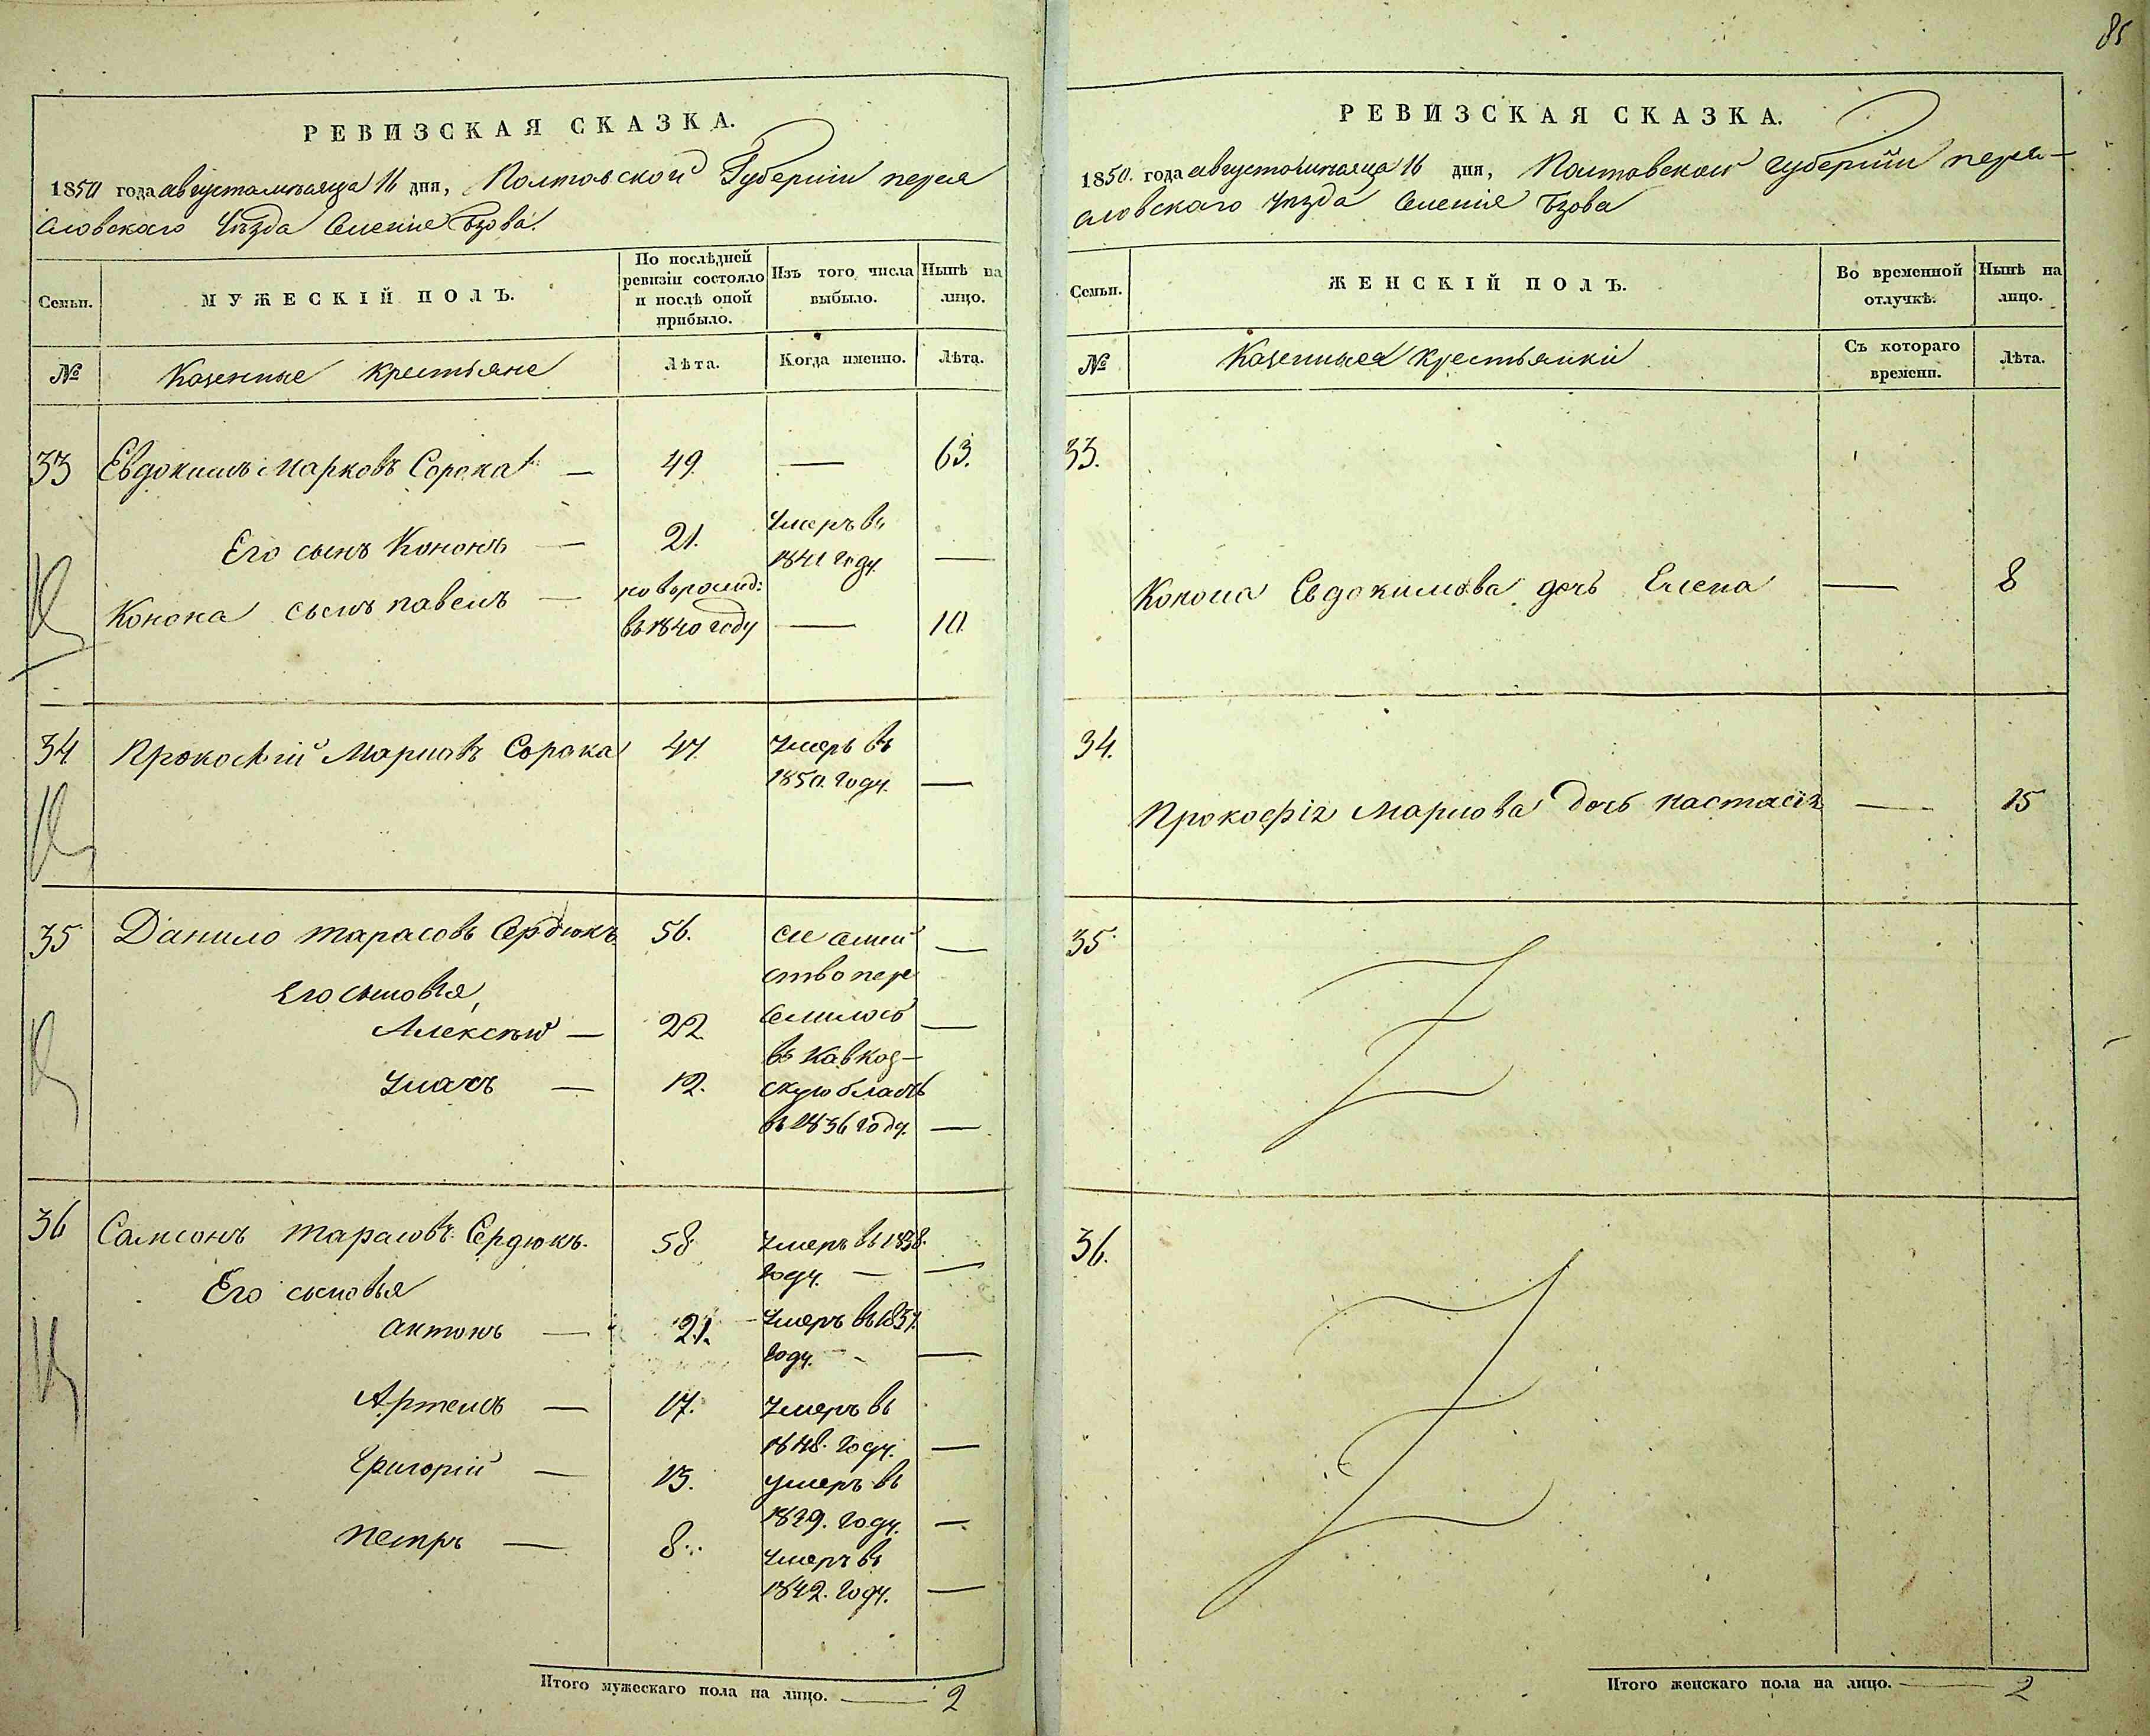 85
РЕВИЗСКАЯ СКАЗКА.
1850 года августа мѣсяца 16 дня, Полтавской Губерніи перея
словскаго Уѣзда Селеніе Бзова.
Семьи.
МУЖЕСКІЙ ПОЛЪ.
По послѣдней
ревизіи состояло
и послѣ оной
прибыло.
Изъ того числа
выбыло.
Нынѣ на
лицо.
№
Казенные крестьяне
Лѣта.
Когда именно.
Лѣта.
33 Евдокимъ Марковъ Сорока — 49. — 63.
Его сынъ Кононъ — 21. Умеръ въ
1841 году. —
Конона сынъ павелъ — новорожд:
въ 1840 году — 10
34 Прокофій Марковъ Сорока 47. Умеръ въ
1850. году. —
35 Данило тарасовъ Сердюкъ 56. —
Его сыновья
Алексѣй — 22. —
— 12.
семей
ство пере
селилось
въ Кавказ-
скую область
въ 1836 году. —
36 Самсонъ тарасовъ Сердюкъ. 58. Умеръ въ 1838.
году. — —
Его сыновья
антонъ — 21. Умеръ въ 1837.
году. — —
Артемъ — 17. Умеръ въ
1848. году. —
Григорій — 13. умеръ въ
1849. году. —
петръ — 8. Умеръ въ
1842. году. —
Итого мужескаго пола на лицо. — 2
РЕВИЗСКАЯ СКАЗКА.
1850. года августа мѣсяца 16 дня, Полтавской губерніи перея-
словскаго Уѣзда Селеніе Бзова
Семьи.
ЖЕНСКІЙ ПОЛЪ.
Во временной
отлучкѣ.
Нынѣ на
лицо.
№
Казенныя крестьянки
Съ котораго
времени.
Лѣта.
33.
Конона Евдокимова дочь Елена — 8
34.
Прокофія Маркова дочь настасія — 15
35.
36.
Итого женскаго пола на лицо. — 2